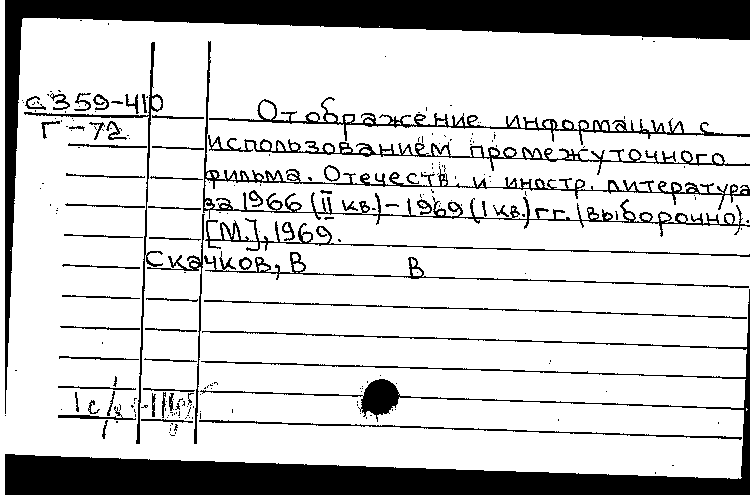 а359-410
Г-72
Отображение информации с
использованием промежуточного
фильма. Отечеств. и иностр. литература
за 1966 (II кв.)-1969 (I кв.) гг. (выборочно).
[М.], 1969.
Скачков, В В
1с/